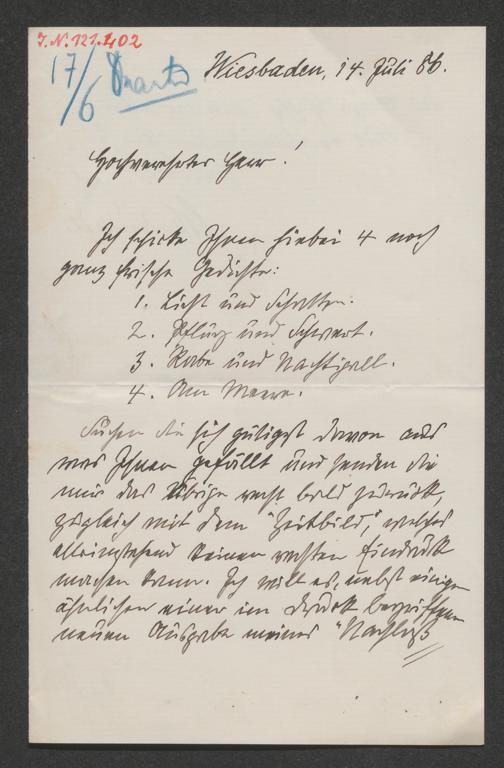 I.N. 121.402
17/6
Wiesbaden, 14. Juli 86.
Hochverehrter Herr!
Ich schicke Ihnen hiebei 4 noch
ganz frische Gedichte:
1. Licht und Schatten.
2. Pflug und Schwert.
3. Rabe und Nachtigall.
4. Am Meere.
Suchen Sie sich gütigst davon aus
was Ihnen gefällt und senden Sie
mir das Übrige recht bald zurück,
zugleich mit dem "Zeitbild", welches
alleinstehend keinen rechten Eindruck
machen kann. Ich will es, nebst einigen
ähnlichen einer im Druck begriffenen
neuen Ausgabe meines "Nachlaß